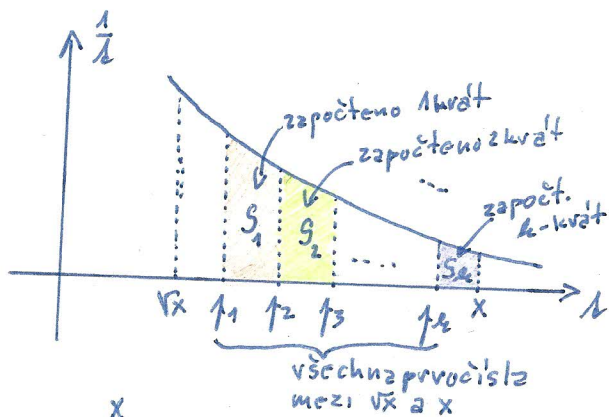 1/t
započteno 1krát
započteno 2krát
započt.
k-krát
S₁ S₂ Sₖ
√x p₁ p₂ p₃ pₖ x t
všechna prvočísla
mezi √x a x
x